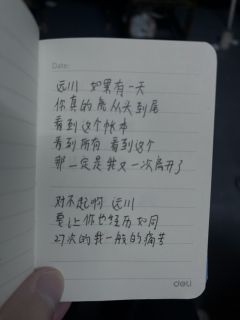 Date:
远川 如果有一天
你真的能从头到尾
看到这个帐本
看到所有 看到这个
那一定是我又一次离开了
对不起啊 远川
要让你也经历如同
27次的我一般的痛苦
deli